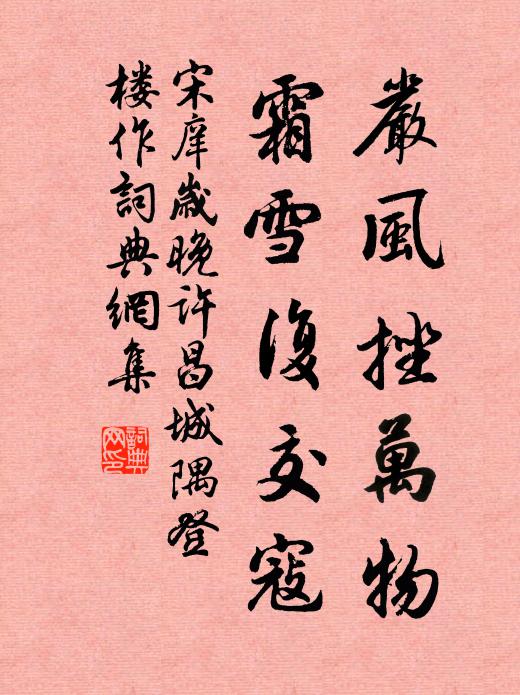 嚴風挫萬物
霜雪復交寇
宋庠歲晚許昌城隅登
楼作詞典網集
詞典
网印